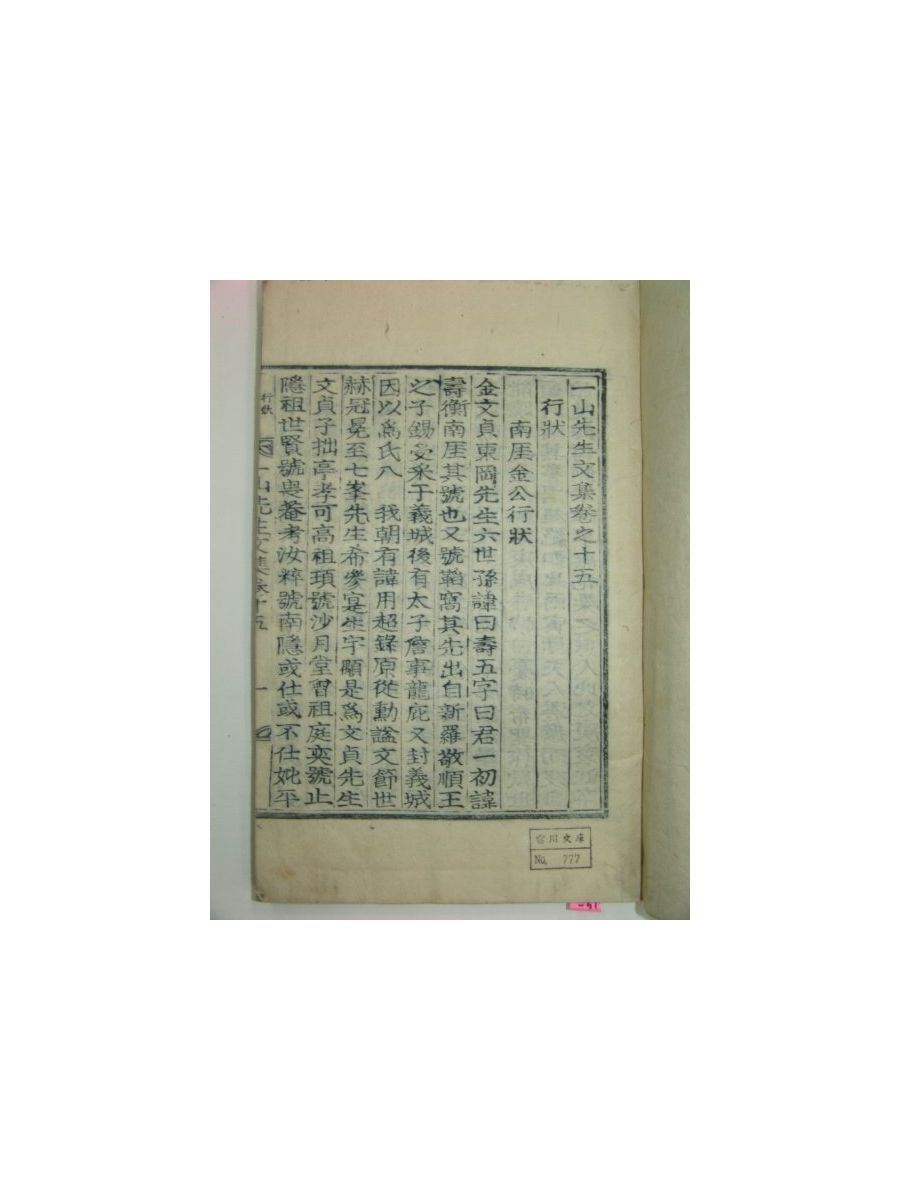 一山先生文集卷之十五
行狀
南厓金公行狀
金文貞東岡先生六世孫諱曰壽五字曰君一初諱
壽衡南厓其號也又號韜窩其先出自新羅敬順王
之子錫受采于義城後有太子詹事龍庇又封義城
因以爲氏入 我朝有諱用超錄原從勳諡文節世
赫冠冕至七峯先生希參寔生宇顒是爲文貞先生
文貞子拙亭孝可高祖頊號沙月堂曾祖庭奕號止
隱祖世賢號畏菴考汝粹號南隱或仕或不仕妣平
行狀
一山先生文集卷十五
一
富川文庫
No. 777